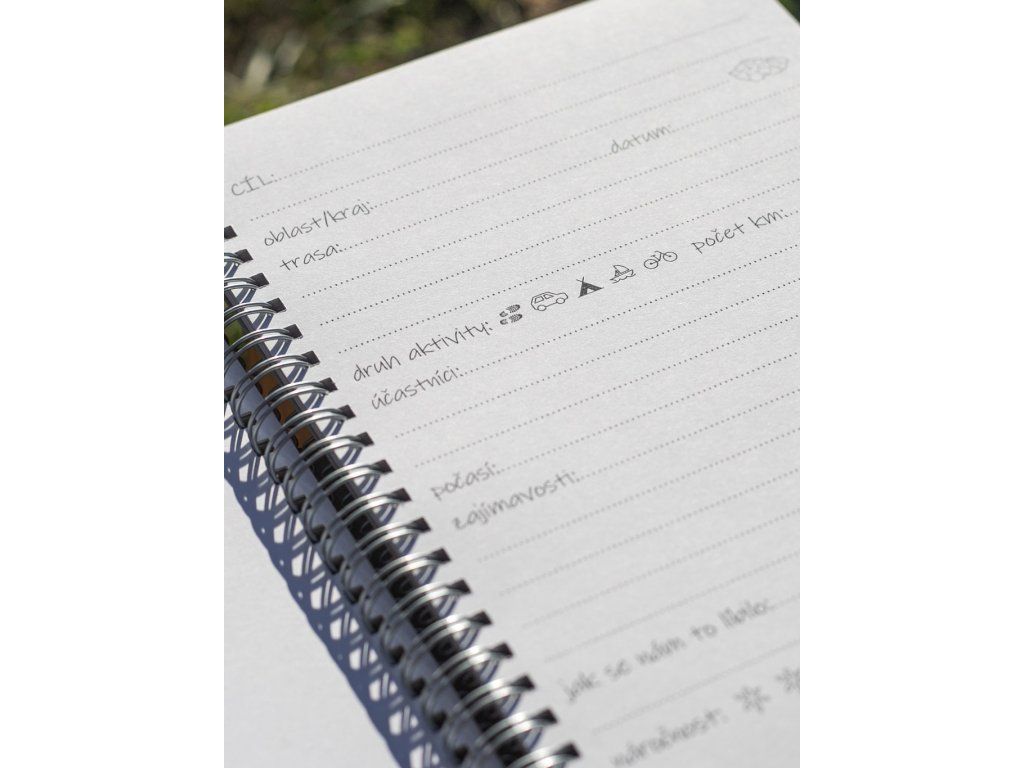 CÍL:
datum:
oblast/kraj:
trasa:
druh aktivity: počet km:
účastníci:
počasí:
zajímavosti:
jak se nám to líbilo:
náročnost: